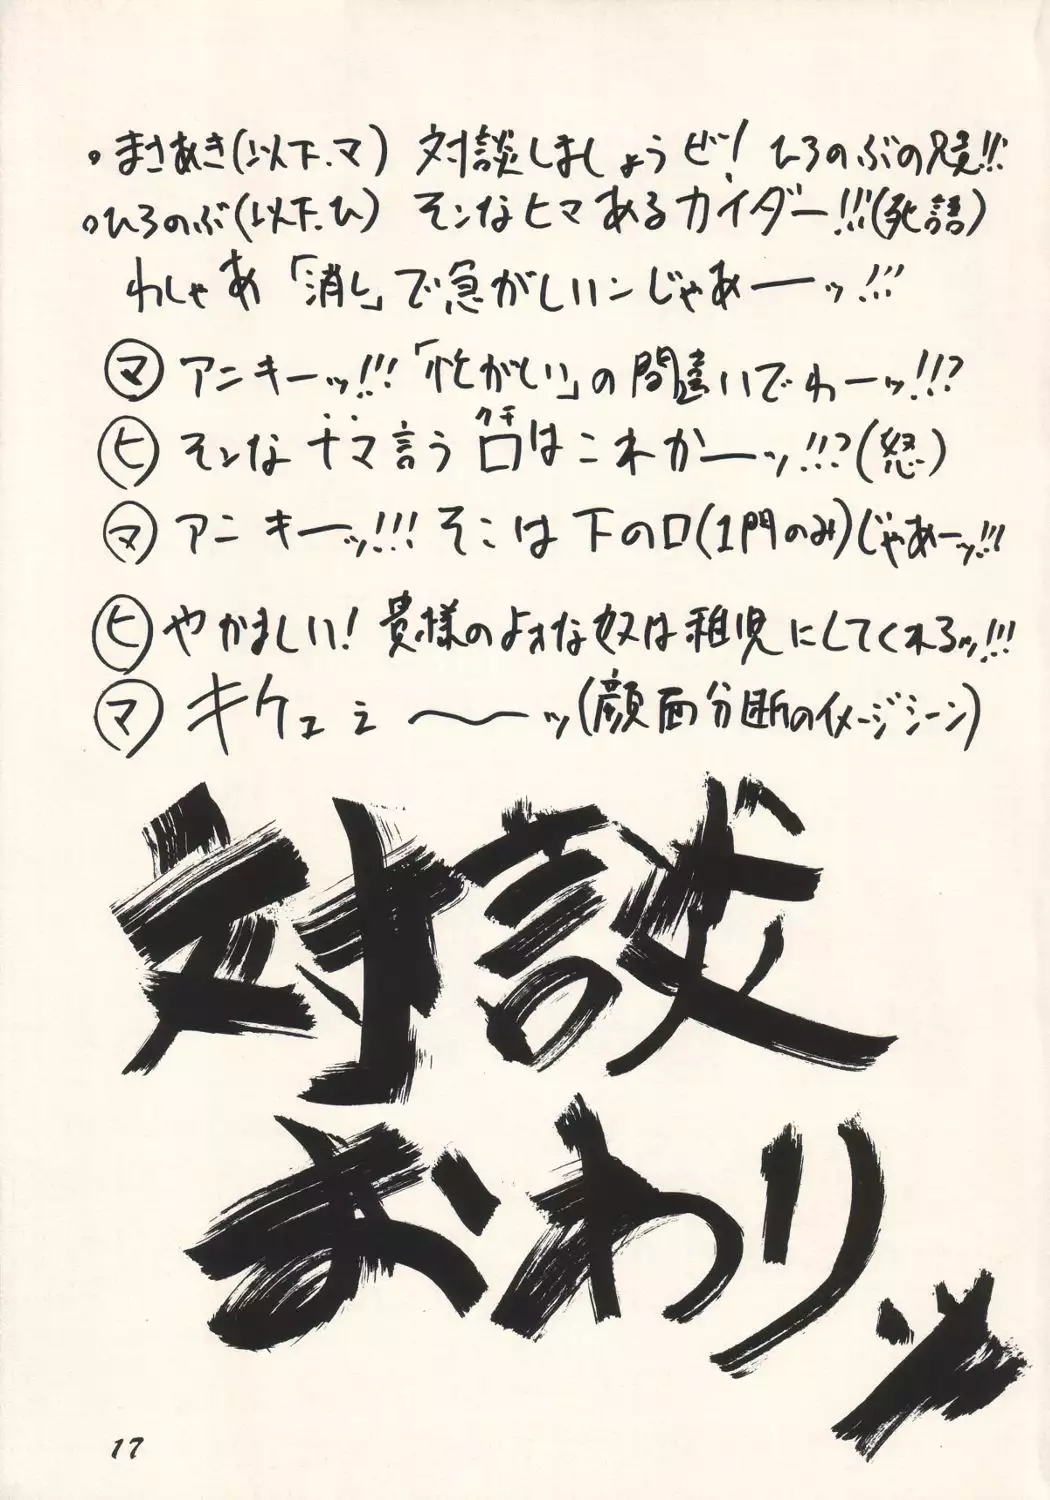 。まさあき(以下.マ) 対談しましょうぜ! ひろのぶの兄貴!!!
。ひろのぶ(以下.ひ) そンなヒマあるカイダー!!!(死語)
わしゃあ「消し」で急がしいンじゃあーーッ!!!
マ アニキーッ!!!「忙がしい」の間違いでわーッ!!!?
ヒ そンなナマ言う口はこれかーーッ!!!?(怒)
クチ
マ アニキーッ!!! そこは下の口(1門のみ)じゃあーッ!!!
ヒ やかましい! 貴様のよォな奴は稚児にしてくれるッ!!!
マ キケェェ〜〜ッ(顔面分断のイメージシーン)
対談
おわりッ
17